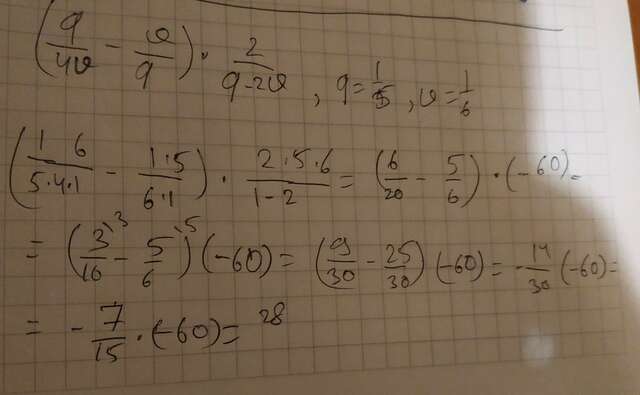 (q/4υ - υ/q) · 2/(q-2υ), q=1/5, υ=1/6
(1 6/5·4·1 - 1·5/6·1) · 2·5·6/1-2 = (6/20 - 5/6) · (-60) =
= (3/10^3 - 5/6^5)(-60) = (9/30 - 25/30)(-60) = -14/30(-60) =
= -7/15 · (-60) = 28